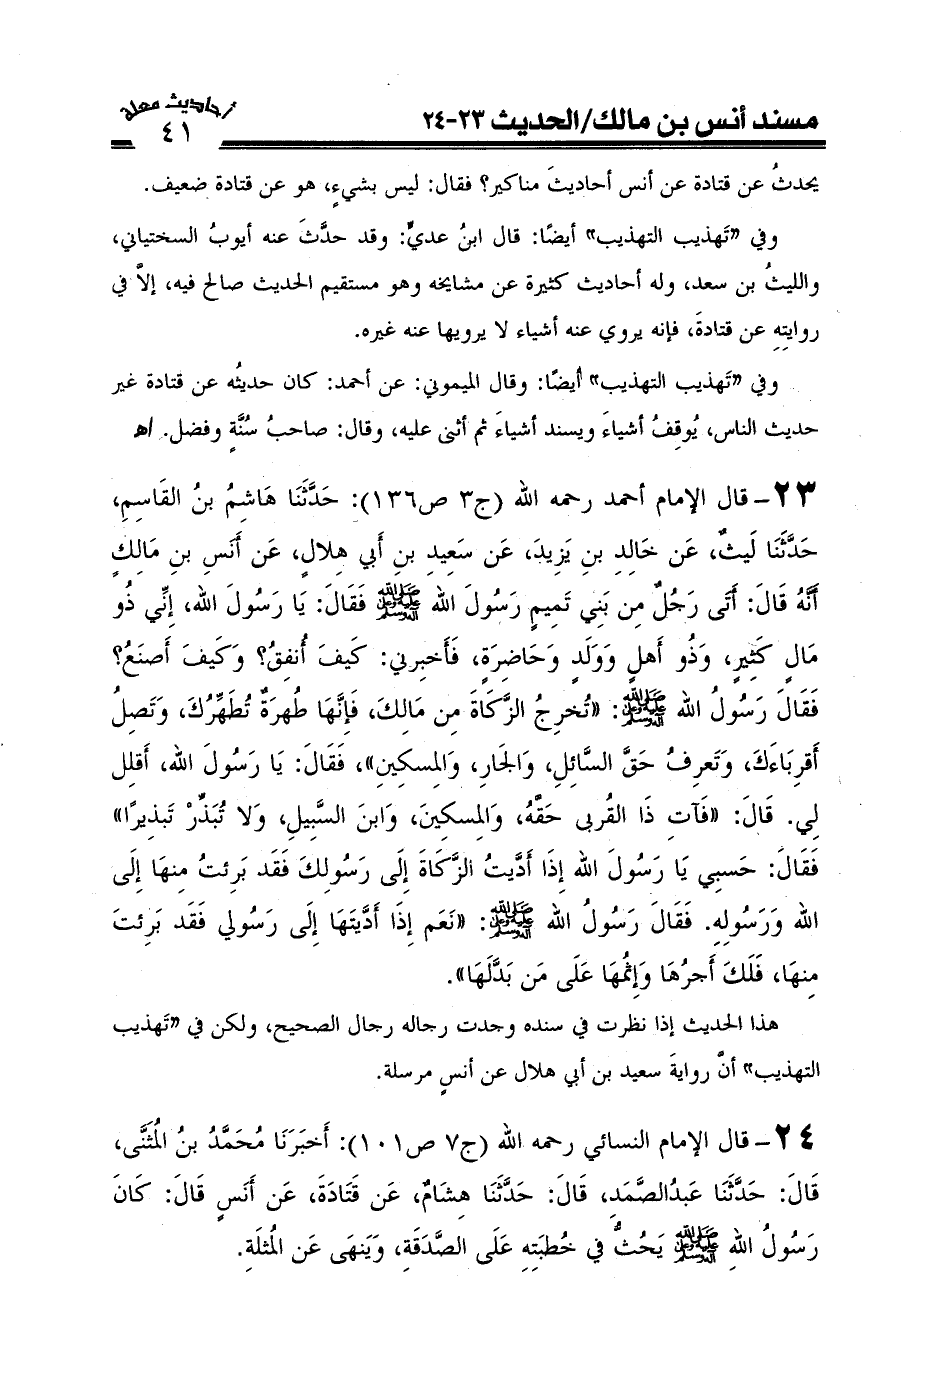 مسند أنس بن مالك/الحديث ٢٣-٢٤
أحاديث معلة
٤١
يحدثُ عن قتادة عن أنس أحاديثَ مناكير؟ فقال: ليس بشيءٍ، هو عن قتادة ضعيف.
وفي «تهذيب التهذيب» أيضًا: قال ابنُ عديٍّ: وقد حدَّثَ عنه أيوبُ السختياني،
والليثُ بن سعد، وله أحاديث كثيرة عن مشايخه وهو مستقيم الحديث صالح فيه، إلاَّ في
روايتهِ عن قتادةَ، فإنه يروي عنه أشياء لا يرويها عنه غيره.
وفي «تهذيب التهذيب» أيضًا: وقال الميموني: عن أحمد: كان حديثُه عن قتادة غير
حديث الناس، يُوقِفُ أشياءَ ويسند أشياءَ ثم أثنى عليه، وقال: صاحبُ سُنَّةٍ وفضل. اهـ
٢٣- قال الإمام أحمد رحمه الله (ج٣ ص١٣٦): حَدَّثَنَا هَاشِمُ بنُ القَاسِمِ،
حَدَّثَنَا لَيثٌ، عَن خَالِدِ بنِ يَزِيدَ، عَن سَعِيدِ بنِ أَبي هِلالٍ، عَن أَنَسِ بنِ مَالِكٍ
أَنَّهُ قَالَ: أَتَى رَجُلٌ مِن بَنِي تَمِيمٍ رَسُولَ الله ﷺ فَقَالَ: يَا رَسُولَ الله، إِنِّي ذُو
مَالٍ كَثِيرٍ، وَذُو أَهلٍ وَوَلَدٍ وَحَاضِرَةٍ، فَأَخبِرنِي: كَيفَ أُنفِقُ؟ وَكَيفَ أَصنَعُ؟
فَقَالَ رَسُولُ الله ﷺ: «تُخرِجُ الزَّكَاةَ مِن مَالِكَ، فَإِنَّهَا طُهرَةٌ تُطَهِّرُكَ، وَتَصِلُ
أَقرِبَاءَكَ، وَتَعرِفُ حَقَّ السَّائِلِ، وَالجَارِ، وَالمِسكِينِ»، فَقَالَ: يَا رَسُولَ الله، أَقلِل
لِي. قَالَ: «فَآتِ ذَا القُربى حَقَّهُ، وَالمِسكِينَ، وَابنَ السَّبِيلِ، وَلا تُبَذِّرْ تَبذِيرًا»
فَقَالَ: حَسبِي يَا رَسُولَ الله إِذَا أَدَّيتُ الزَّكَاةَ إِلَى رَسُولِكَ فَقَد بَرِئتُ مِنهَا إِلَى
الله وَرَسُولِهِ. فَقَالَ رَسُولُ الله ﷺ: «نَعَم إِذَا أَدَّيتَهَا إِلَى رَسُولِي فَقَد بَرِئتَ
مِنهَا، فَلَكَ أَجرُهَا وَإِثمُهَا عَلَى مَن بَدَّلَهَا».
هذا الحديث إذا نظرت في سنده وجدت رجاله رجال الصحيح، ولكن في «تهذيب
التهذيب» أنَّ روايةَ سعيد بن أبي هلال عن أنسٍ مرسلة.
٢٤- قال الإمام النسائي رحمه الله (ج٧ ص١٠١): أَخبَرَنَا مُحَمَّدُ بنُ المُثَنَّى،
قَالَ: حَدَّثَنَا عَبدُالصَّمَدِ، قَالَ: حَدَّثَنَا هِشَامٌ، عَن قَتَادَةَ، عَن أَنَسٍ قَالَ: كَانَ
رَسُولُ اللهِ ﷺ يَحُثُّ فِي خُطبَتِهِ عَلَى الصَّدَقَةِ، وَيَنهَى عَنِ المُثلَةِ.